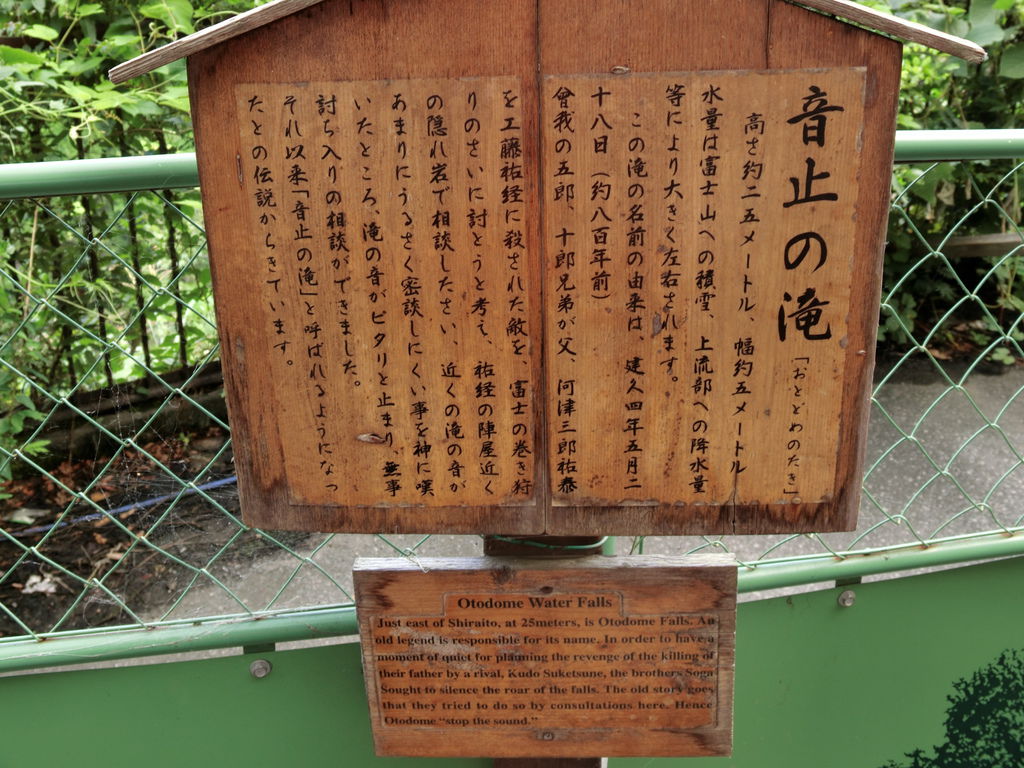 音止の滝「おとどめのたき」
高さ約二五メートル、幅約五メートル
水量は富士山への積雪、上流部への降水量
等により大きく左右されます。
この滝の名前の由来は、建久四年五月二
十八日（約八百年前）
曾我の五郎、十郎兄弟が父、河津三郎祐泰
を工藤祐経に殺された敵を、富士の巻き狩
りのさいに討とうと考え、祐経の陣屋近く
の隠れ岩で相談したさい、近くの滝の音が
あまりにうるさく密談しにくい事を神に嘆
いたところ、滝の音がピタリと止まり、無事
討ち入りの相談ができました。
それ以来「音止の滝」と呼ばれるようになっ
たとの伝説からきています。
Otodome Water Falls
Just east of Shiraito, at 25meters, is Otodome Falls. An
old legend is responsible for its name. In order to have a
moment of quiet for planning the revenge of the killing of
their father by a rival, Kudo Suketsune, the brothers Soga
Sought to silence the roar of the falls. The old story goes
that they tried to do so by consultations here. Hence
Otodome "stop the sound."